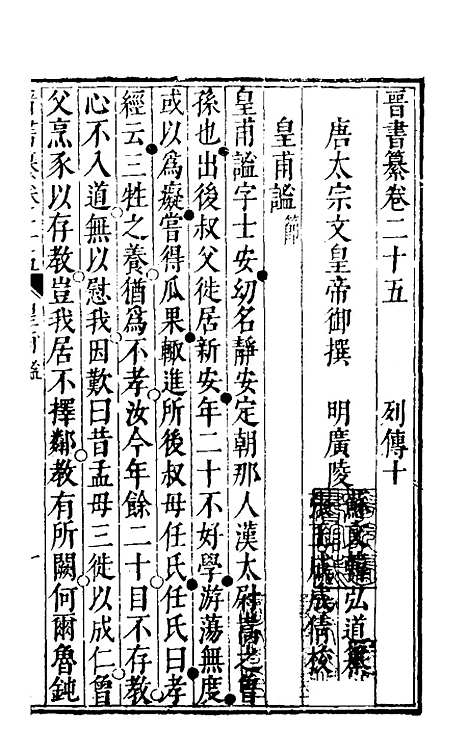 晉書纂卷二十五　列傳十
唐太宗文皇帝御撰　明廣陵
弘道
成倩校
皇甫謐 節
皇甫謐字士安幼名靜安定朝那人漢太尉嵩之曾
孫也出後叔父徙居新安年二十不好學游蕩無度
或以爲癡嘗得瓜果輙進所後叔母任氏任氏曰孝
經云三牲之養猶爲不孝汝今年餘二十目不存教
心不入道無以慰我因歎曰昔孟母三徙以成仁曾
父烹豕以存教豈我居不擇鄰教有所闕何爾魯鈍